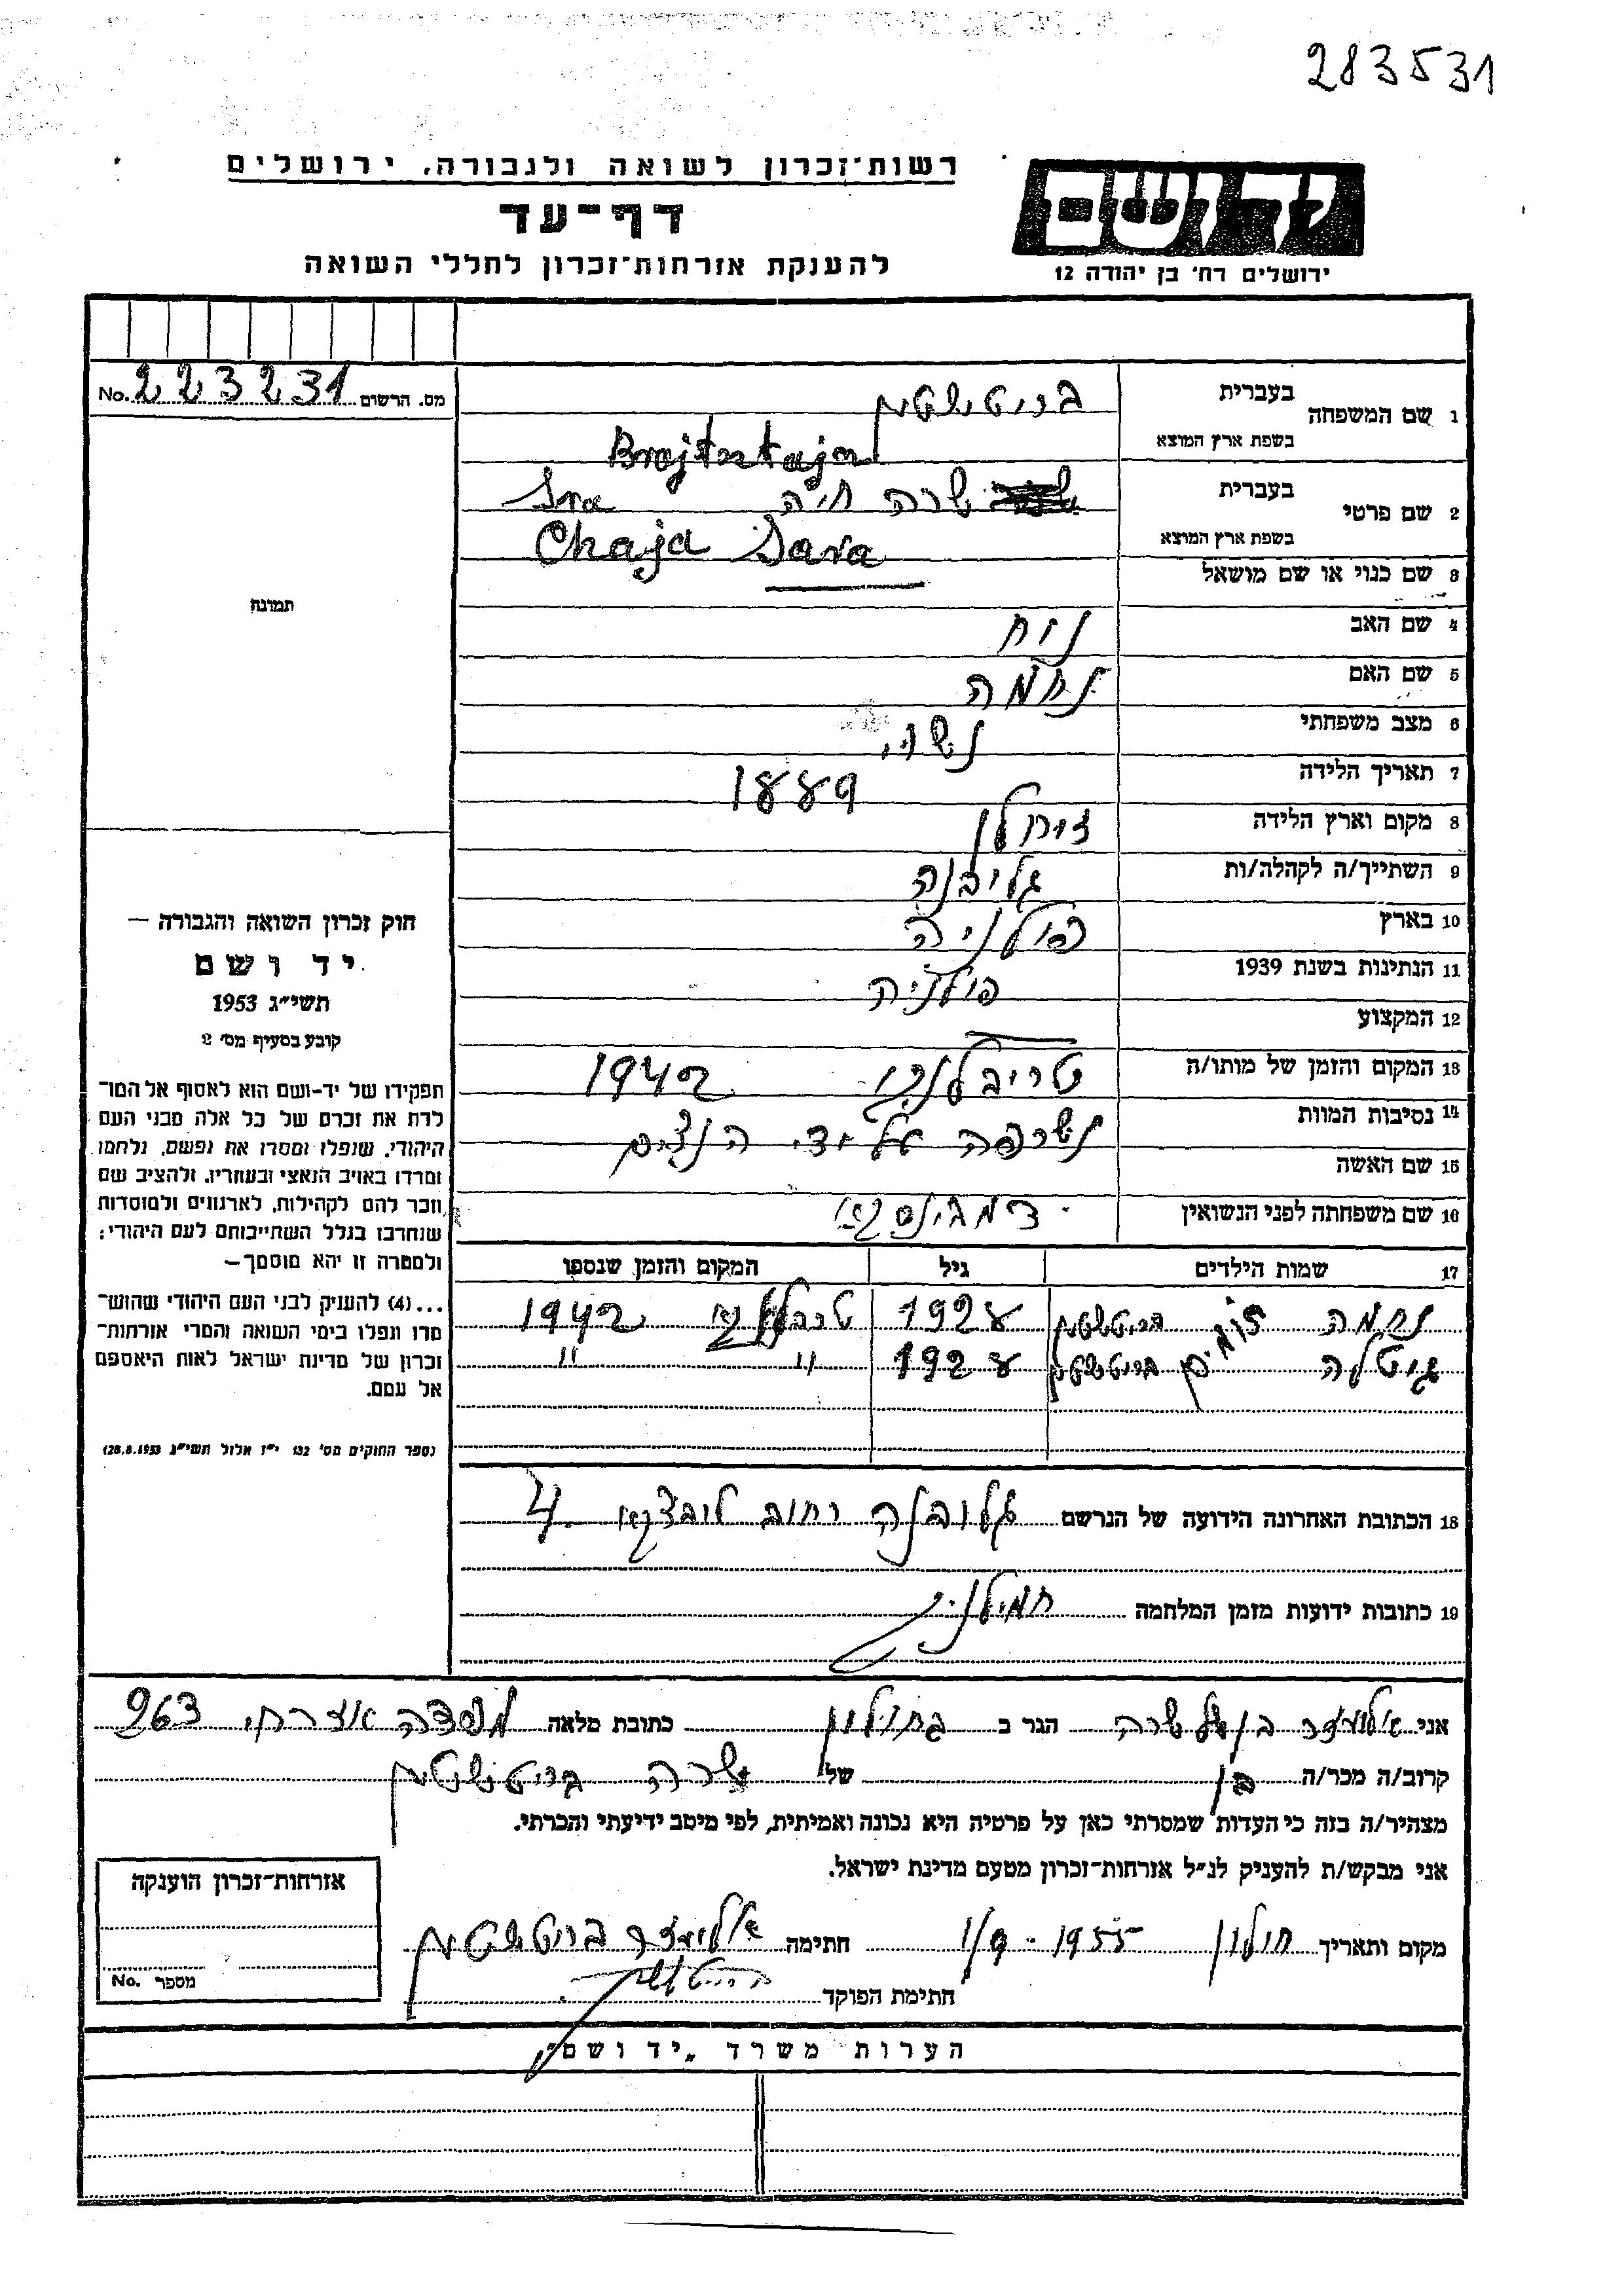 283531
רשות־זכרון לשואה ולגבורה, ירושלים
יד ושם
דף־עד
להענקת אזרחות־זכרון לחללי השואה
ירושלים רח' בן יהודה 12
מס. הרשום 223231 No.
1 שם המשפחה
בעברית ברייטשטיין
בשפת ארץ המוצא Brajtsztajn
2 שם פרטי
בעברית שרה חיה Sra
בשפת ארץ המוצא Chaja Sara
3 שם כנוי או שם מושאל
4 שם האב נח
5 שם האם נחמה
6 מצב משפחתי נשוי
7 תאריך הלידה 1889
8 מקום וארץ הלידה
9 השתייך/ה לקהלה/ות גליבנה
10 בארץ פולניה
11 הנתינות בשנת 1939 פולניה
12 המקצוע
13 המקום והזמן של מותו/ה טריבלינקי 1942
14 נסיבות המוות נשרפה על ידי הנצים
15 שם האשה
16 שם משפחתה לפני הנשואין
17 שמות הילדים גיל המקום והזמן שנספו
נחמה ברייטשטיין 1928 טרבלינקי 1942
גיטלה תאומים ברייטשטיין 1928 " "
18 הכתובת האחרונה הידועה של הנרשם גלובנה רחוב 4
19 כתובות ידועות מזמן המלחמה
תמונה
חוק זכרון השואה והגבורה —
יד ושם
תשי״ג 1953
קובע בסעיף מס' 2
תפקידו של יד-ושם הוא לאסוף אל המו־
לדת את זכרם של כל אלה מבני העם
היהודי, שנפלו ומסרו את נפשם, נלחמו
ומרדו באויב הנאצי ובעוזריו, ולהציב שם
וזכר להם לקהילות, לארגונים ולמוסדות
שנחרבו בגלל השתייכותם לעם היהודי;
ולמטרה זו יהא מוסמך—
...(4) להעניק לבני העם היהודי שהוש־
מדו ונפלו בימי השואה והמרי אזרחות־
זכרון של מדינת ישראל לאות היאספם
אל עמם.
(ספר החוקים מס' 132 י״ז אלול תשי״ג 28.8.1953)
אני הגר ב בחולון כתובת מלאה 263
קרוב/ה מכר/ה בן של שרה ברייטשטיין
מצהיר/ה בזה כי העדות שמסרתי כאן על פרטיה היא נכונה ואמיתית, לפי מיטב ידיעתי והכרתי.
אני מבקש/ת להעניק לנ״ל אזרחות־זכרון מטעם מדינת ישראל.
מקום ותאריך חולון 1/9-1955 חתימה אליעזר ברייטשטיין
חתימת הפוקד
אזרחות־זכרון הוענקה
מספר No.
הערות משרד „יד ושם״